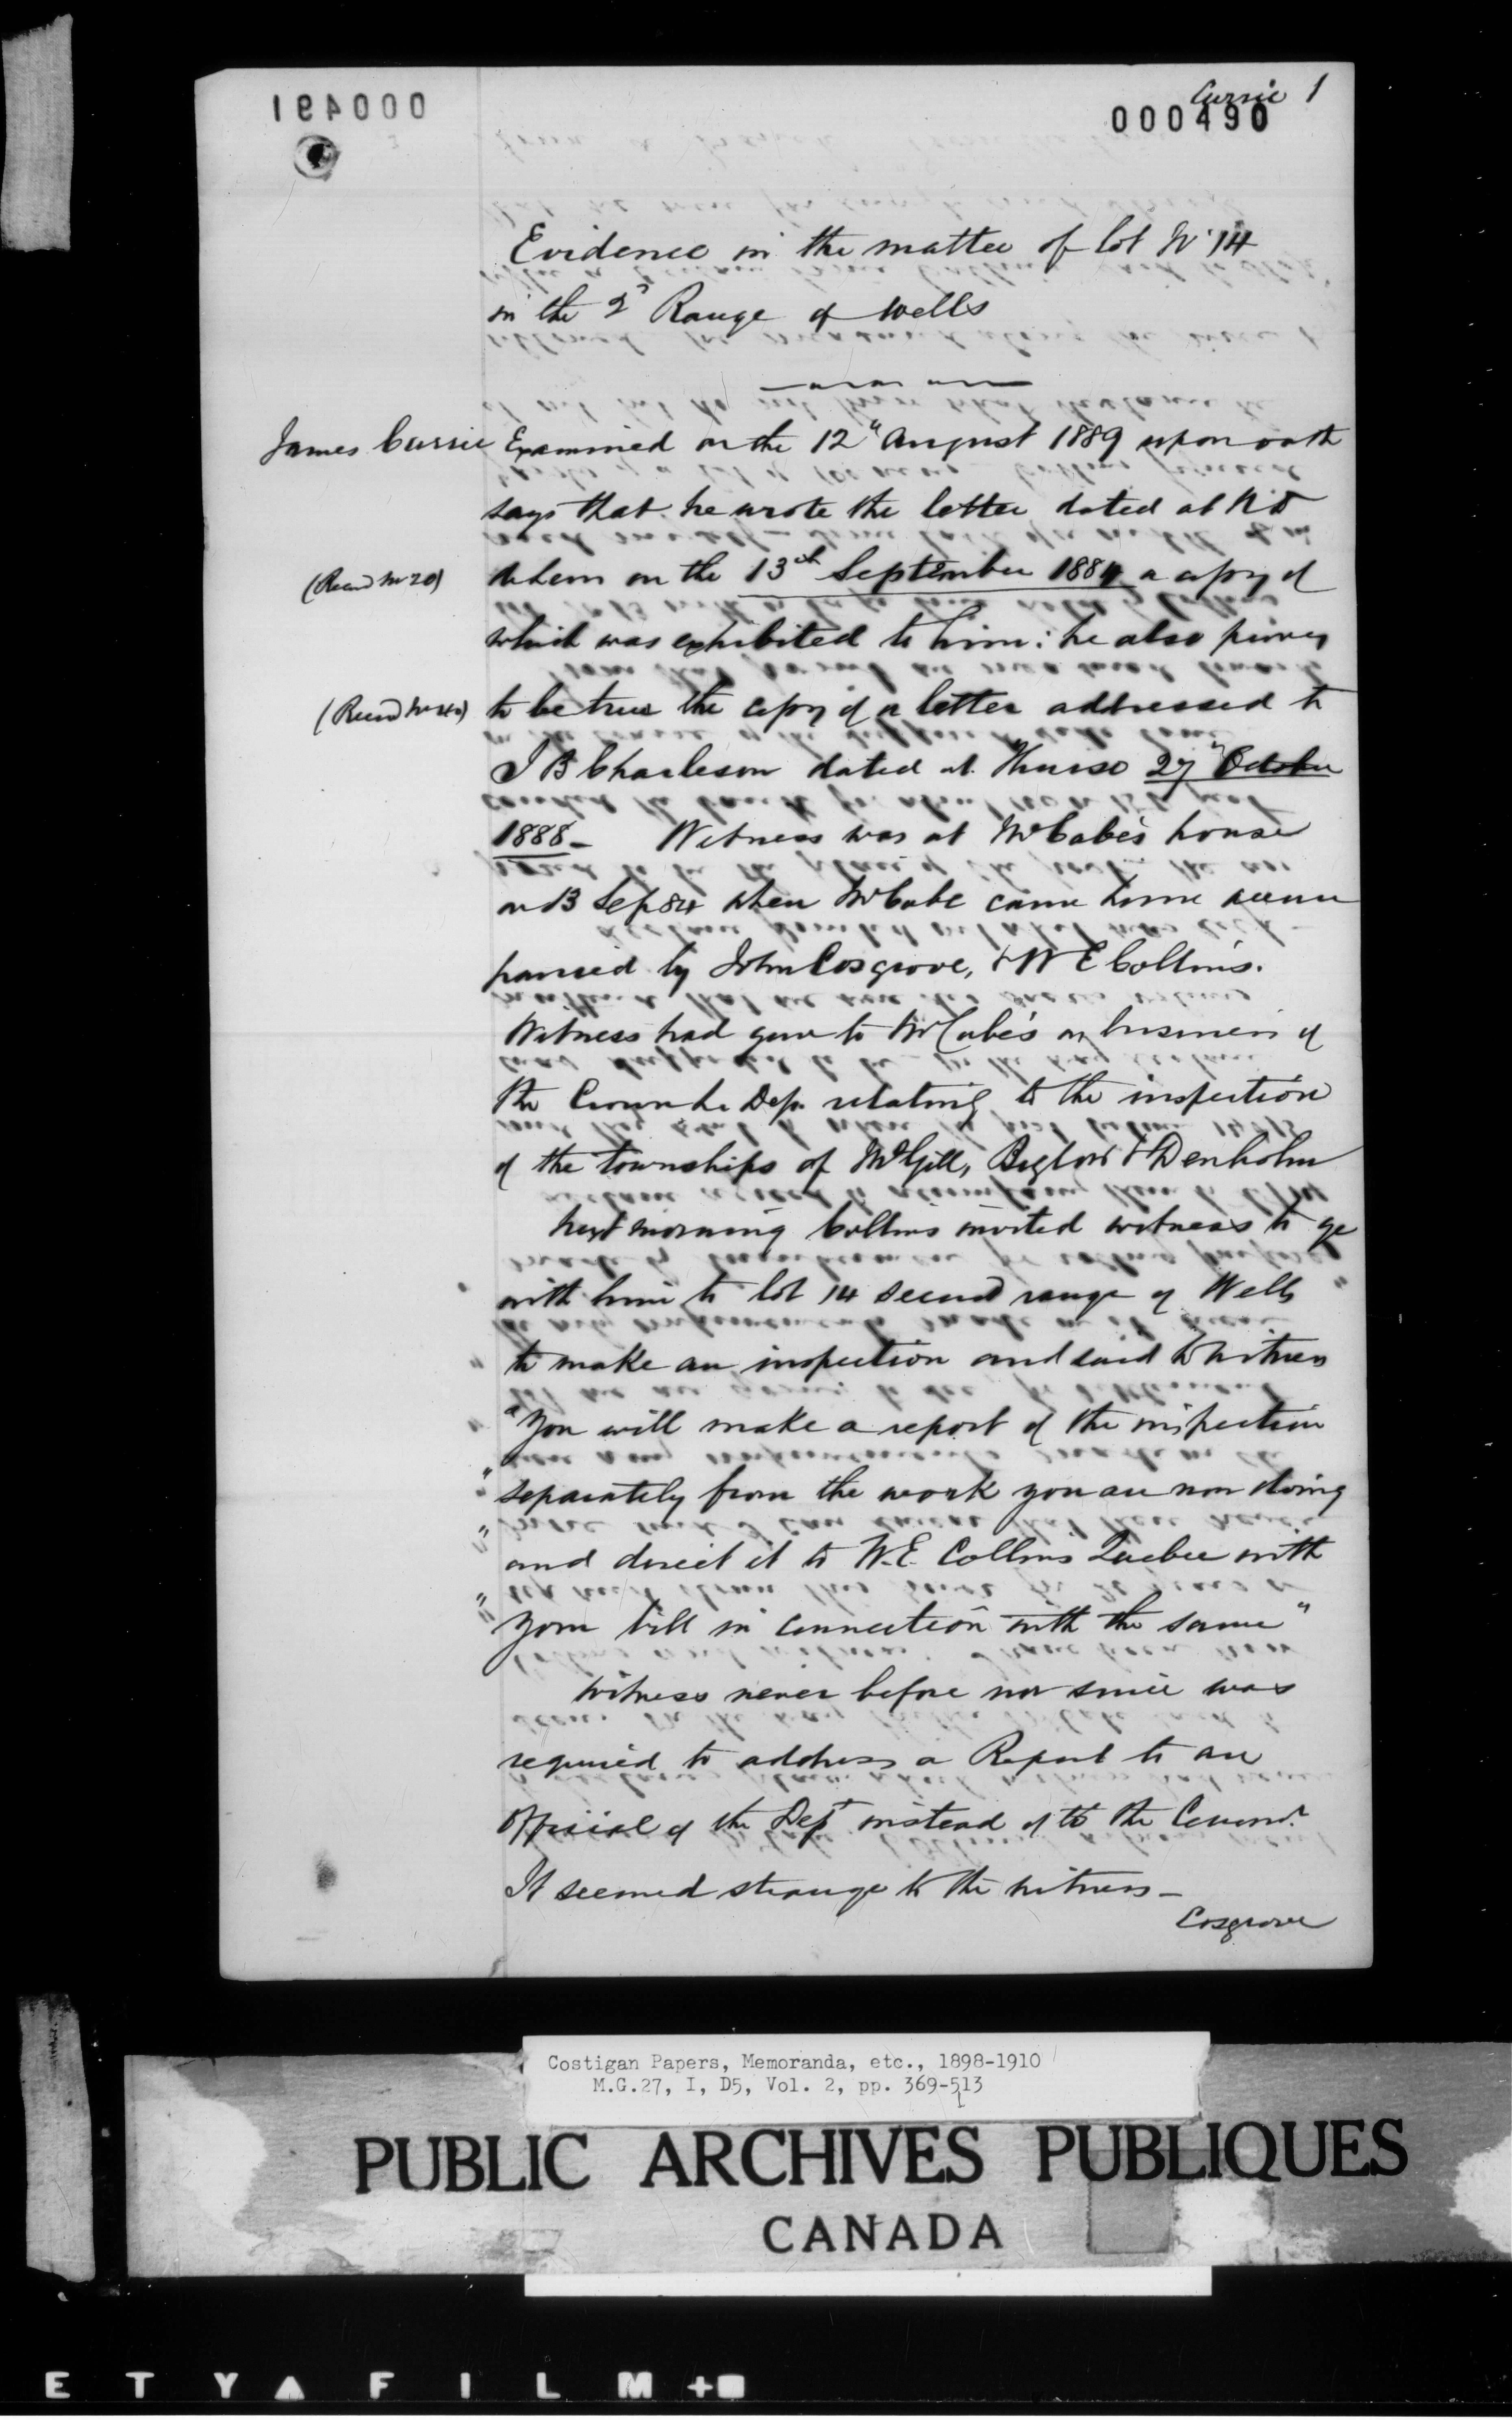 Currie 1
000490
000491
Evidence in the matter of lot No 14
in the 2d Range of Wells
James Currie Examined on the 12" August 1889 upon oath
says that he wrote the letter dated at
(Record No 20) on the 13th September 1884 a copy of
which was exhibited to him: he also proves
(Record No 40) to be true the copy of a letter addressed to
J B Charleson dated at Thurso 27" October
1888 - Witness was at McCabe's house
on 13 Sep 84 when McCabe came home accom
panied by John Cosgrove, & W E Collins.
Witness had gone to McCabe's on business of
the Crown La Dep. relating to the inspection
of the townships of McGill, Biglow & Denholm
next morning Collins invited witness to go
" with him to lot 14 second range of Wells "
" to make an inspection and said to witness
" "You will make a report of the inspection
" separately from the work you are now doing
" and direct it to W.E. Collins Quebec with
" your bill in connection with the same "
Witness never before nor since was
required to address a Report to an
official of the Dept instead of to the Commr.
It seemed strange to the witness -
Cosgrove
Costigan Papers, Memoranda, etc., 1898-1910
M.G.27, I, D5, Vol. 2, pp. 369-513
PUBLIC ARCHIVES PUBLIQUES
CANADA
E T Y ▲ F I L M + ■